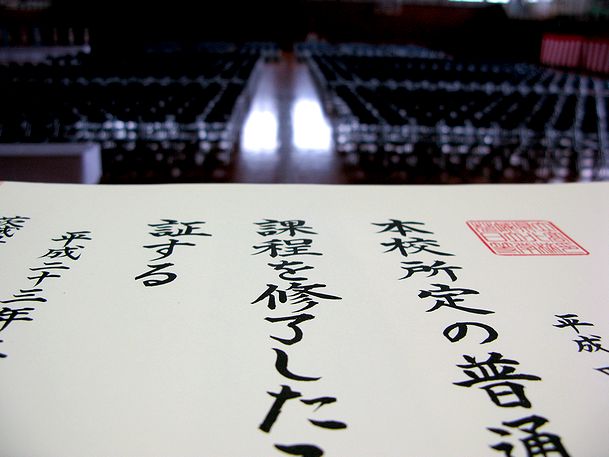 平成
本校所定の普通
課程を修了した
証する
平成二十三年